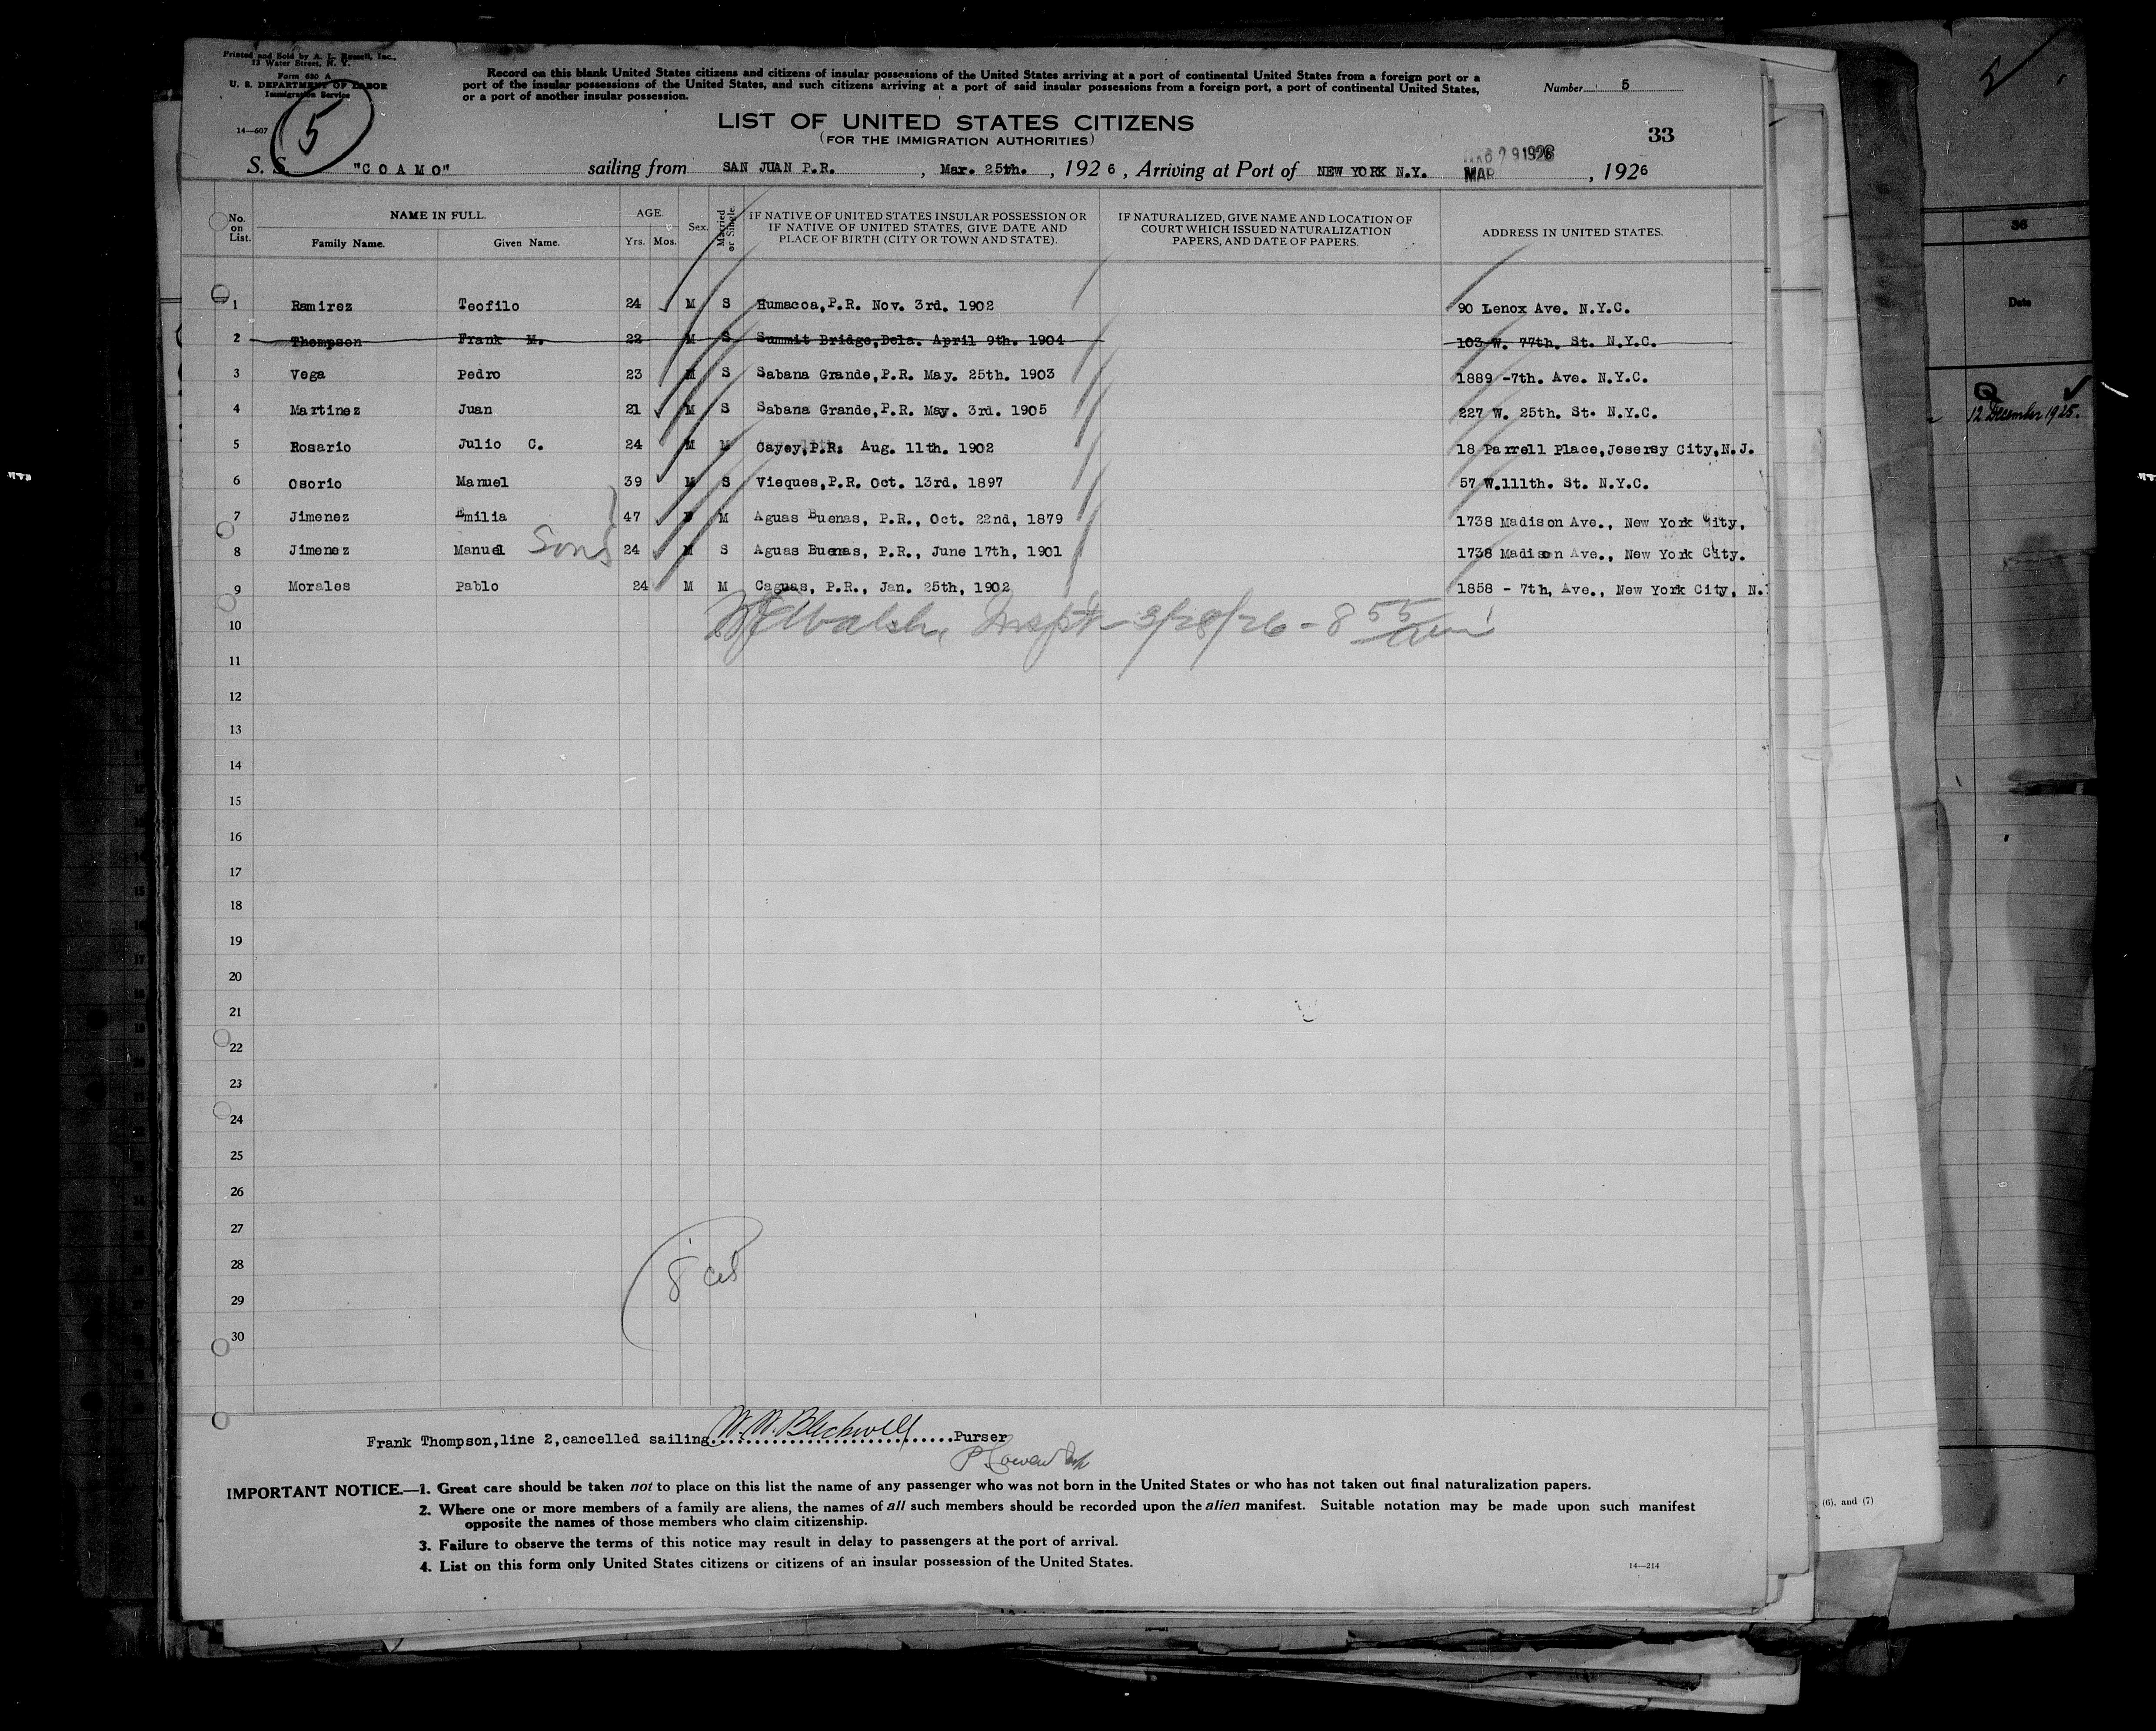 Printed and Sold by A. L. Russell, Inc.,
12 Water Street, N. Y.
Form 630 A
U. S. DEPARTMENT OF LABOR
Immigration Service
14—607
5
Record on this blank United States citizens and citizens of insular possessions of the United States arriving at a port of continental United States from a foreign port or a
port of the insular possessions of the United States, and such citizens arriving at a port of said insular possessions from a foreign port, a port of continental United States,
or a port of another insular possession.
Number 5
LIST OF UNITED STATES CITIZENS
(FOR THE IMMIGRATION AUTHORITIES)
33
S. S. "COAMO" sailing from SAN JUAN P.R. , Mar. 25th. , 1926 , Arriving at Port of NEW YORK N.Y. MAR , 1926
No. on List. NAME IN FULL. Family Name. Given Name. AGE. Yrs. Mos. Sex. Married or Single. IF NATIVE OF UNITED STATES INSULAR POSSESSION OR IF NATIVE OF UNITED STATES, GIVE DATE AND PLACE OF BIRTH (CITY OR TOWN AND STATE). IF NATURALIZED, GIVE NAME AND LOCATION OF COURT WHICH ISSUED NATURALIZATION PAPERS, AND DATE OF PAPERS. ADDRESS IN UNITED STATES.
1 Ramirez Teofilo 24 M S Humacoa,P.R. Nov. 3rd. 1902 90 Lenox Ave. N.Y.C.
2 Thompson Frank M. 22 M S Summit Bridge,Dela. April 9th. 1904 103 W. 77th. St. N.Y.C.
3 Vega Pedro 23 M S Sabana Grande,P.R. May. 25th. 1903 1889 -7th. Ave. N.Y.C.
4 Martinez Juan 21 M S Sabana Grande,P.R. May. 3rd. 1905 227 W. 25th. St. N.Y.C.
5 Rosario Julio C. 24 M M Cayey,P.R. Aug. 11th. 1902 18 Parrell Place,Jesersy City,N.J.
6 Osorio Manuel 39 M S Vieques,P.R. Oct. 13rd. 1897 57 W.111th. St. N.Y.C.
7 Jimenez Emilia 47 M Aguas Buenas, P.R., Oct. 22nd, 1879 1738 Madison Ave., New York City,
8 Jimenez Manuel Son 24 M S Aguas Buenas, P.R., June 17th, 1901 1738 Madison Ave., New York City.
9 Morales Pablo 24 M M Caguas, P.R., Jan. 25th, 1902 1858 - 7th, Ave., New York City, N.
10 Walsh Inspt - 3/28/26 - 8 55 am
11
12
13
14
15
16
17
18
19
20
21
22
23
24
25
26
27
28
29
30
8
Frank Thompson,line 2,cancelled sailing W. W. Blackwell Purser
IMPORTANT NOTICE.—1. Great care should be taken not to place on this list the name of any passenger who was not born in the United States or who has not taken out final naturalization papers.
2. Where one or more members of a family are aliens, the names of all such members should be recorded upon the alien manifest. Suitable notation may be made upon such manifest
opposite the names of those members who claim citizenship.
3. Failure to observe the terms of this notice may result in delay to passengers at the port of arrival.
4. List on this form only United States citizens or citizens of an insular possession of the United States.
14—214
36
Date
12 December 1925.
(6), and (7)